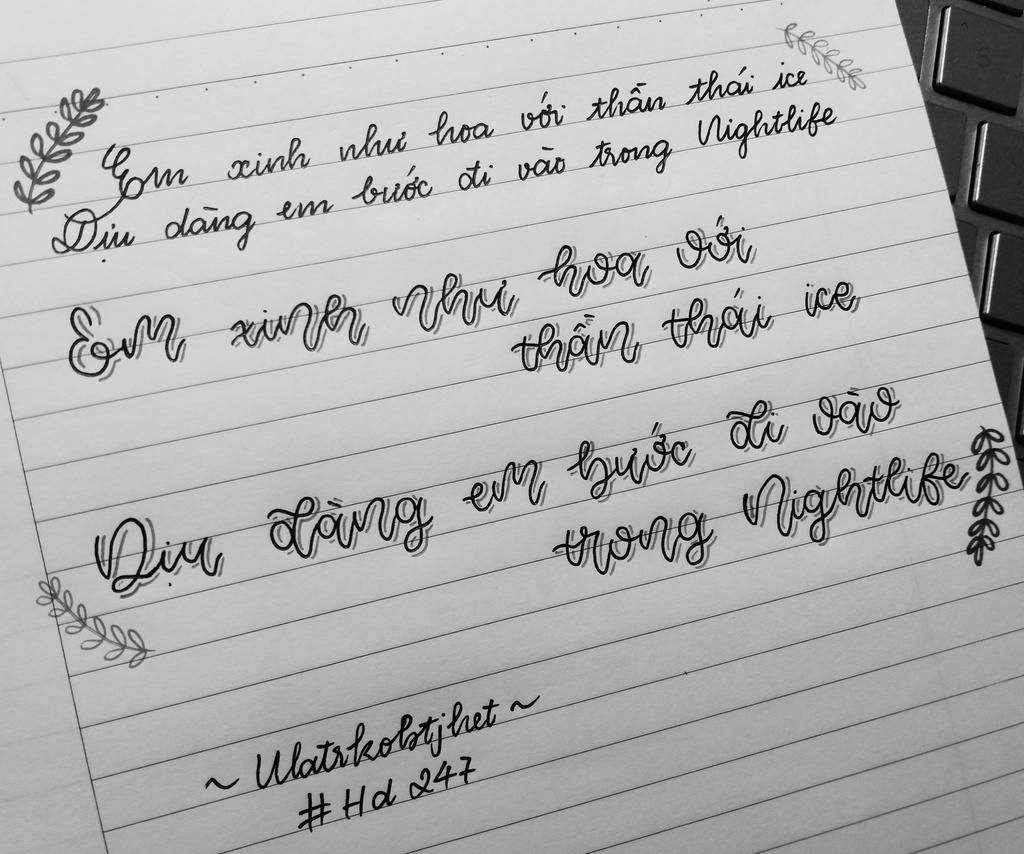 Em xinh như hoa với thần thái ice
Dịu dàng em bước đi vào trong Nightlife
Em xinh như hoa với
thần thái ice
Dịu dàng em bước đi vào
trong Nightlife
~ Watrkobtjhet ~
#Hd 247